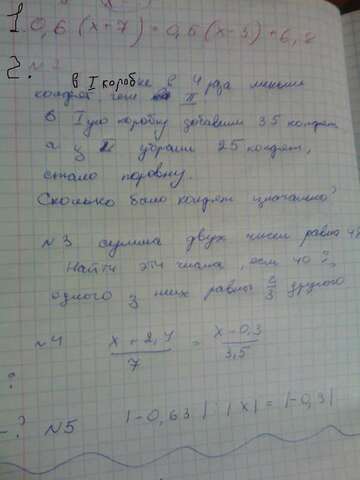 1. 0,6 (x+7) = 0,5 (x-3) + 6,2
2. №2
в I коробке в 4 раза меньше
конфет, чем во II
В Iую коробку добавили 35 конфет
а з II убрали 25 конфет,
стало поровну.
Сколько было конфет изначально?
№3 сумма двух чисел равна 48
Найти эти числа, если 40 %
одного з них равны 2/3 другого
№4 x+2,4/7 = x-0,3/3,5
?
-? №5 |-0,63| : |x| = |-0,3|